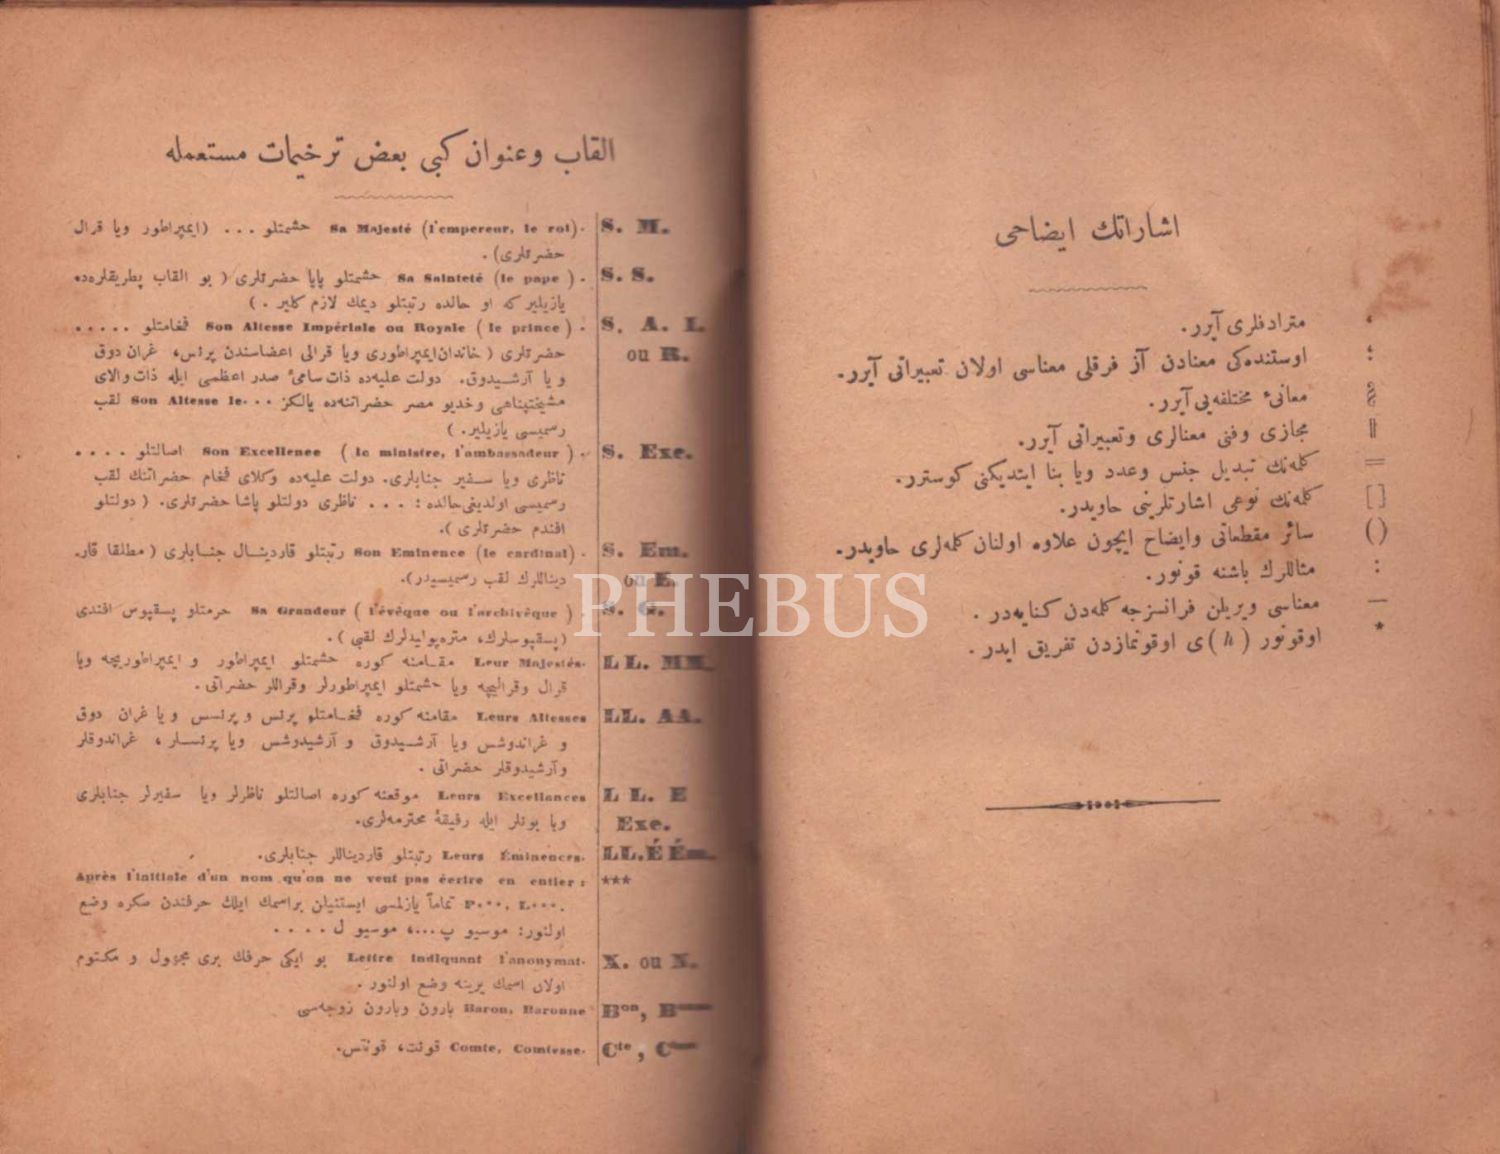 القاب وعنوان كبى بعض ترخيمات مستعمله
S. M. Sa Majesté (l'empereur, le roi). حشمتلو ... (ايمپراطور ويا قرال
حضرتلرى).
S. S. Sa Sainteté (le pape). حشمتلو پاپا حضرتلرى (بو القاب پطريقلره‌ده
يازيلير كه او حالده رتبتلو ديمك لازم كلير.)
S. A. I. Son Altesse Impériale ou Royale (le prince). فخامتلو .....
ou R. حضرتلرى (خاندان ايمپراطورى ويا قرالى اعضاسندن پرنس، غران دوق
ويا آرشيدوق. دولت عليه‌ده ذات سامئ صدر اعظمى ايله ذات والاى
مشيختپناهى وخديو مصر حضراتنه‌ده يالكز Son Altesse le... لقب
رسميسى يازيلير.)
S. Exc. Son Excellence (le ministre, l'ambassadeur). اصالتلو ....
ناظرى ويا سفير جنابلرى. دولت عليه‌ده وكلاى فخام حضراتنك لقب
رسميسى اولديغى حالده: ... ناظرى دولتلو پاشا حضرتلرى. (دولتلو
افندم حضرتلرى).
S. Em. Son Eminence (le cardinal). رتبتلو قاردينال جنابلرى (مطلقا قار-
ou E. ديناللرك لقب رسميسيدر).
S. G. Sa Grandeur (l'évêque ou l'archivêque). حرمتلو پسقپوس افندى
(پسقپوسلرك، متره‌پوليدلرك لقبى).
LL. MM. Leur Majestés. مقامنه كوره حشمتلو ايمپراطور و ايمپراطوريچه ويا
قرال وقراليچه ويا حشمتلو ايمپراطورلر وقراللر حضراتى.
LL. AA. Leurs Altesses مقامنه كوره فخامتلو پرنس و پرنسس ويا غران دوق
و غراندوشس ويا آرشيدوق و آرشيدوشس ويا پرنسلر، غراندوقلر
وآرشيدوقلر حضراتى.
LL. E Leurs Excellances موقعنه كوره اصالتلو ناظرلر ويا سفيرلر جنابلرى
Exc. ويا بونلر ايله رفيقهٔ محترمه‌لرى.
LL. É Ém. Leurs Éminences. رتبتلو قارديناللر جنابلرى.
*** Après l'initiale d'un nom qu'on ne veut pas écrire en entier:
P***, L***. تماماً يازلمسى ايستنيلن براسمك ايلك حرفندن صكره وضع
اولنور: موسيو پ...، موسيو ل ....
X. ou N. Lettre indiquant l'anonymat. بو ايكى حرفك برى مجهول و مكتوم
اولان اسمك يرينه وضع اولنور.
Bon, Bonne Baron, Baronne بارون وبارون زوجه‌سى
Cte, Ctesse Comte, Comtesse. قونت، قونتس.
اشاراتك ايضاحى
، مترادفلرى آيرر.
؛ اوستنده‌كى معنادن آز فرقلى معناسى اولان تعبيراتى آيرر.
§ معانئ مختلفه‌يى آيرر.
‖ مجازى وفنى معنالرى وتعبيراتى آيرر.
= كلمه‌نك تبديل جنس وعدد ويا بنا ايتديكنى كوسترر.
[ ] كلمه‌نك نوعى اشارتلرينى حاويدر.
( ) سائر مقطعاتى وايضاح ايچون علاوه اولنان كلمه‌لرى حاويدر.
: مثاللرك باشنه قونور.
— معناسى ويريلن فرانسزجه كلمه‌دن كنايه‌در.
* اوقونور (h) ى اوقونمازدن تفريق ايدر.
PHEBUS